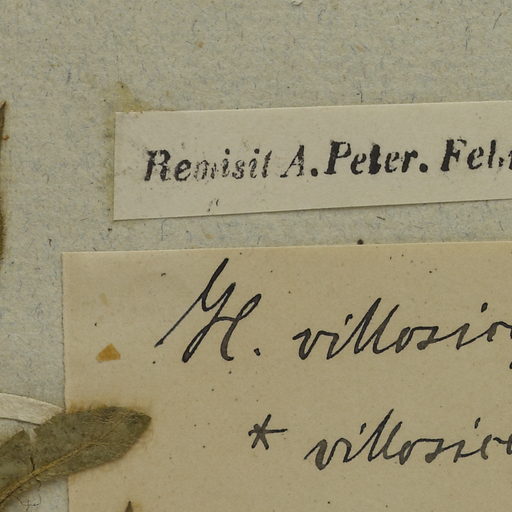 Remisit A. Peter. Feb
H. villosic
* villosice